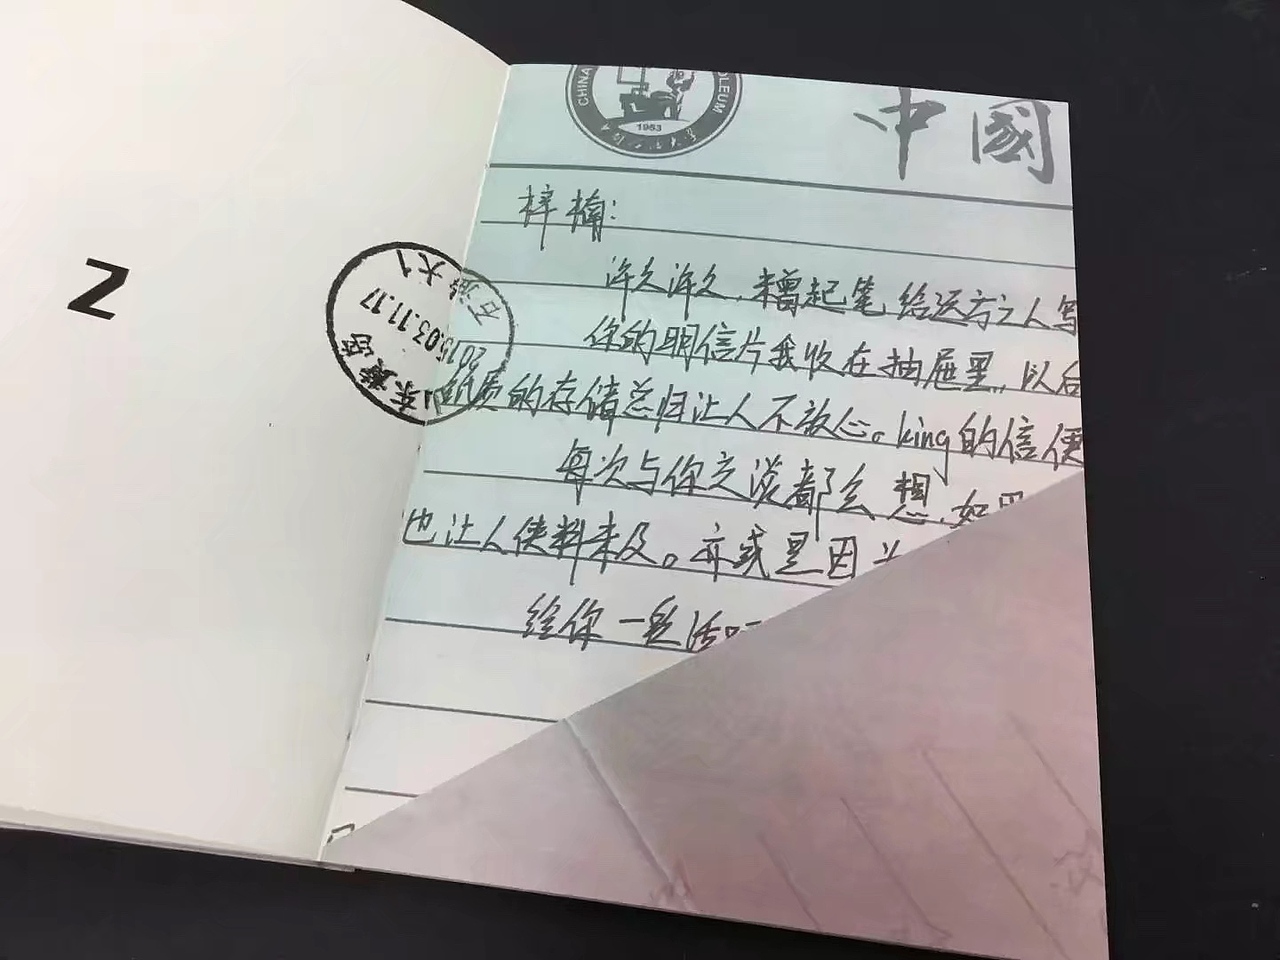 Z
CHINA
OLEUM
1953
中國
梓楠:
许久许久,未曾起笔,给远方之人写
你的明信片我收在抽屉里,以后
纸质的存储总归让人不放心。king的信便
每次与你交谈都会想,如果
也让人使料未及。亦或是因为
给你一些活
山东黄岛
2015.03.11.17
石油大